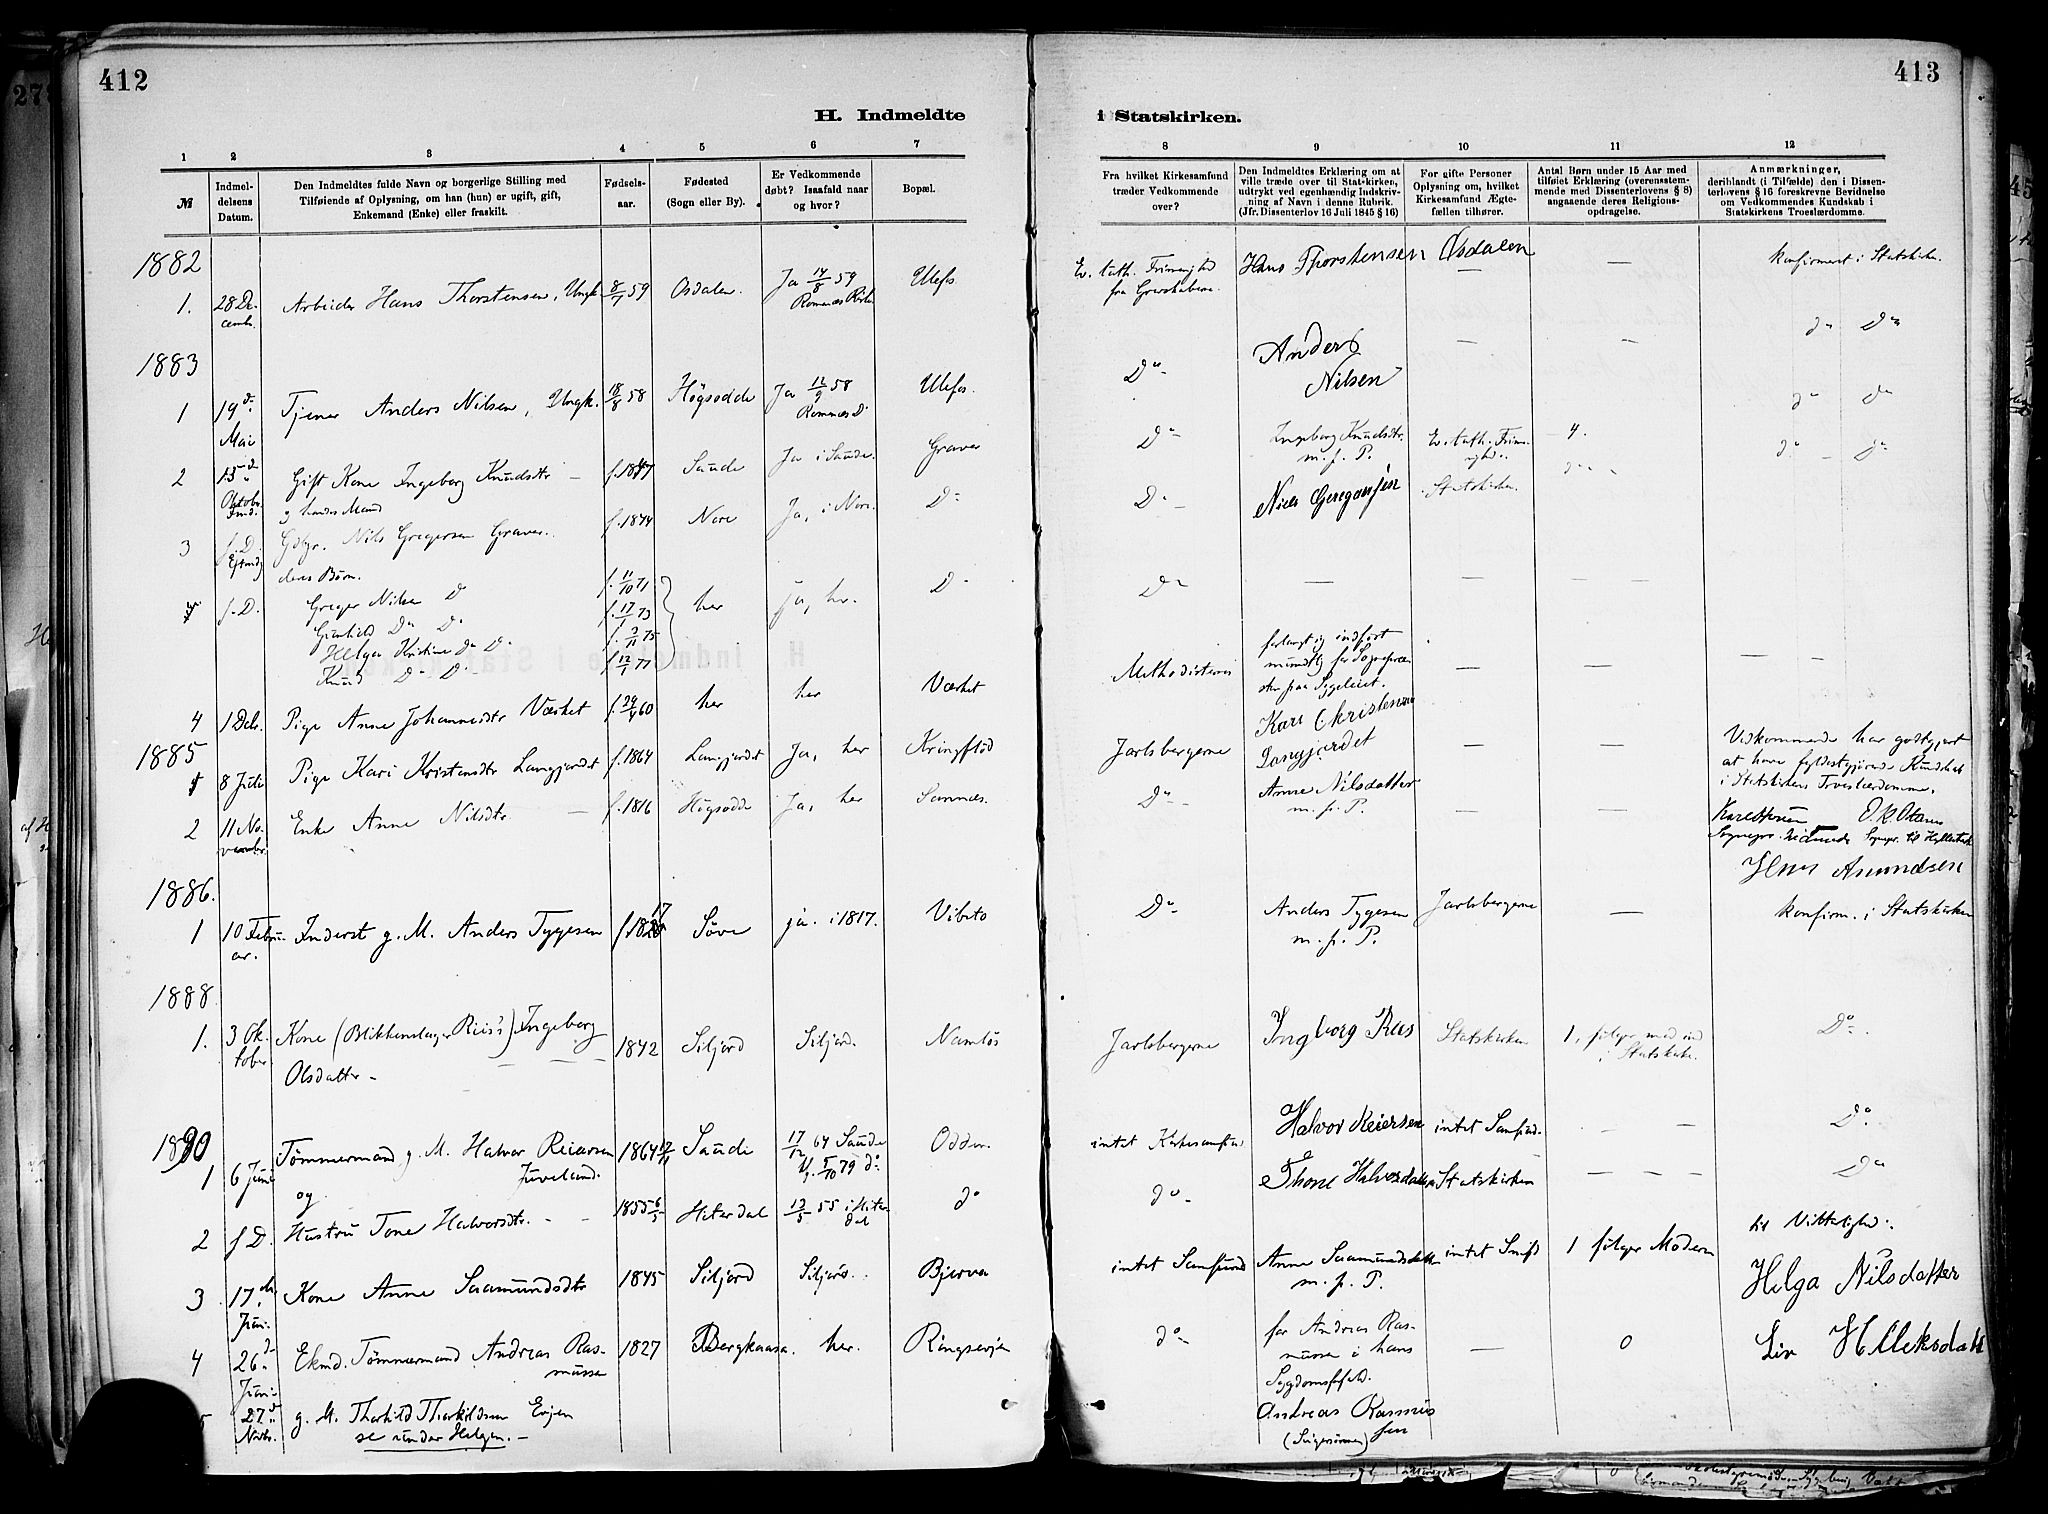 412
H. Indmeldte
1 2 3 4 5 6 7
№
Indmel-
delsens
Datum.
Den Indmeldtes fulde Navn og borgerlige Stilling med
Tilføiende af Oplysning, om han (hun) er ugift, gift,
Enkemand (Enke) eller fraskilt.
Fødsels-
aar.
Fødested
(Sogn eller By).
Er Vedkommende
døbt? Isaafald naar
og hvor?
Bopæl.
1882
1. 28 De- Arbeider Hans Thorstensen, Ungk. 8/1 59 Osdalen. Ja 14/8 59 Ulefos
cembr. Romnæs Kirke
1883
1 19d. Tjener Anders Nilsen, Ungk. 18/8 58 Högsodde Ja 12/9 58 Ulefos.
Mai Romnæs D.
2 Gift Kone Ingeborg Knudsdtr — Saude Ja i Saude. Graver
Oktobr. og hendes Mand
3 f. D. Gdbr. Nils Gregersen Graver. f. 1844 Nore Ja, i Nore. D-
deres Børn.
f. D. Greger Nilsen D f. 11/10 71 her ja, her. D-
Gunhild Do D- f. 17/1 73
Helga Kristine Do D- f. 3/11 75
Knud D- D- f. 12/1 77
4 1 Debr. Pige Anne Johannesdtr Værket f. 24/4 60 her her Værket
1885
1 8 Juli Pige Kari Kristensdtr Langjordet f. 1864 Langjordet Ja, her Kringflod
2 11 No- Enke Anne Nilsdtr — f. 1816 Högsodde Ja, her Sannæs.
vembr.
1886.
1 10 Febru- Inderst g. M. Anders Tygesen f 1817 Söve ja. i 1817. Vibeto
ar.
1888
1. 3 Ok- Kone (Blikkenslager Riis's) Ingeborg 1842 Siljord Siljord. Namløs
tober Olsdatter —
1890
1 6 Juni Tømmermand g. M. Halvor Reiersen 1864 12/11 Saude 17/12 64 Saude Odden.
Juveland. 5/10 79 do
og
2 f D. Hustru Tone Halvorsdtr. - - 1855 6/5 Hiterdal 13/5 55 i Hiter- do
dal
3 17de Kone Anne Saamundsdtr 1845 Siljord Siljord. Bjerva
Juni.
4 26d. Ekmd. Tømmermand Andreas Ras- 1827 Bergkaasa. her. Ringsevjen
Juni mussen
27d g. M. Thorkild Thorkildsen Evjen
Novbr. se under Helgen. -
413
i Statskirken.
8 9 10 11 12
Fra hvilket Kirkesamfund
træder Vedkommende
over?
Den Indmeldtes Erklæring om at
ville træde over til Statskirken,
udtrykt ved egenhændig Indskriv-
ning af Navn i denne Rubrik.
(Jfr. Dissenterlov 16 Juli 1845 § 16)
For gifte Personer
Oplysning om, hvilket
Kirkesamfund Ægte-
fællen tilhører.
Antal Børn under 15 Aar med
tilføiet Erklæring (overensstem-
mende med Dissenterlovens § 8)
angaaende deres Religions-
opdragelse.
Anmærkninger,
deriblandt (i Tilfælde) den i Dissen-
terlovens § 16 foreskrevne Bevidnelse
om Vedkommendes Kundskab i
Statskirkens Troeslærdomme.
Ev. luth. Frimenighed Hans Thorstensen Osdalen — konfirmeret i Statskirken.
fra Grevskaberne.
Do Anders — — do Do
Nilsen
D- Ingeborg Knudsdtr. Ev. luth. Frime- 4. do do
m. p. P. nighed.
D- Niels Gregersen Statskirken. do - do
Do — — — —
Methodisterne forlangt sig indført — — —
mundtlig for Sognepræ-
sten paa Sygeleiet.
Jarlsbergerne Kari Christensen — — Vedkommende har godtgjort
Langjordet at have fyldestgjørende Kundskab
i Statskirkens Troeslærdomme.
D- Anne Nilsdatter — —
m. p. P.
Sognepr. Sognepr. til
Hans Amundsen
Do Anders Tygesen Jarlsbergerne — konfirm. i Statskirken
m. p. P.
Jarlsbergerne Ingborg Riis Statskirken 1, følger med ind Do-.
i Statskirken.
intet Kirkesamfund Halvor Reiersen intet Samfund. — — Do.
do- Thone Halvorsdatter Statskirken — — Do
til Vitterlighed:
intet Samfund Anne Saamundsdatter intet Smfd 1 følger Moderen Helga Nilsdatter
m. p. P.
do- for Andreas Ras- — 0 Liv
mussen i hans
Sygdomsfald.
Andreas Rasmus
sen